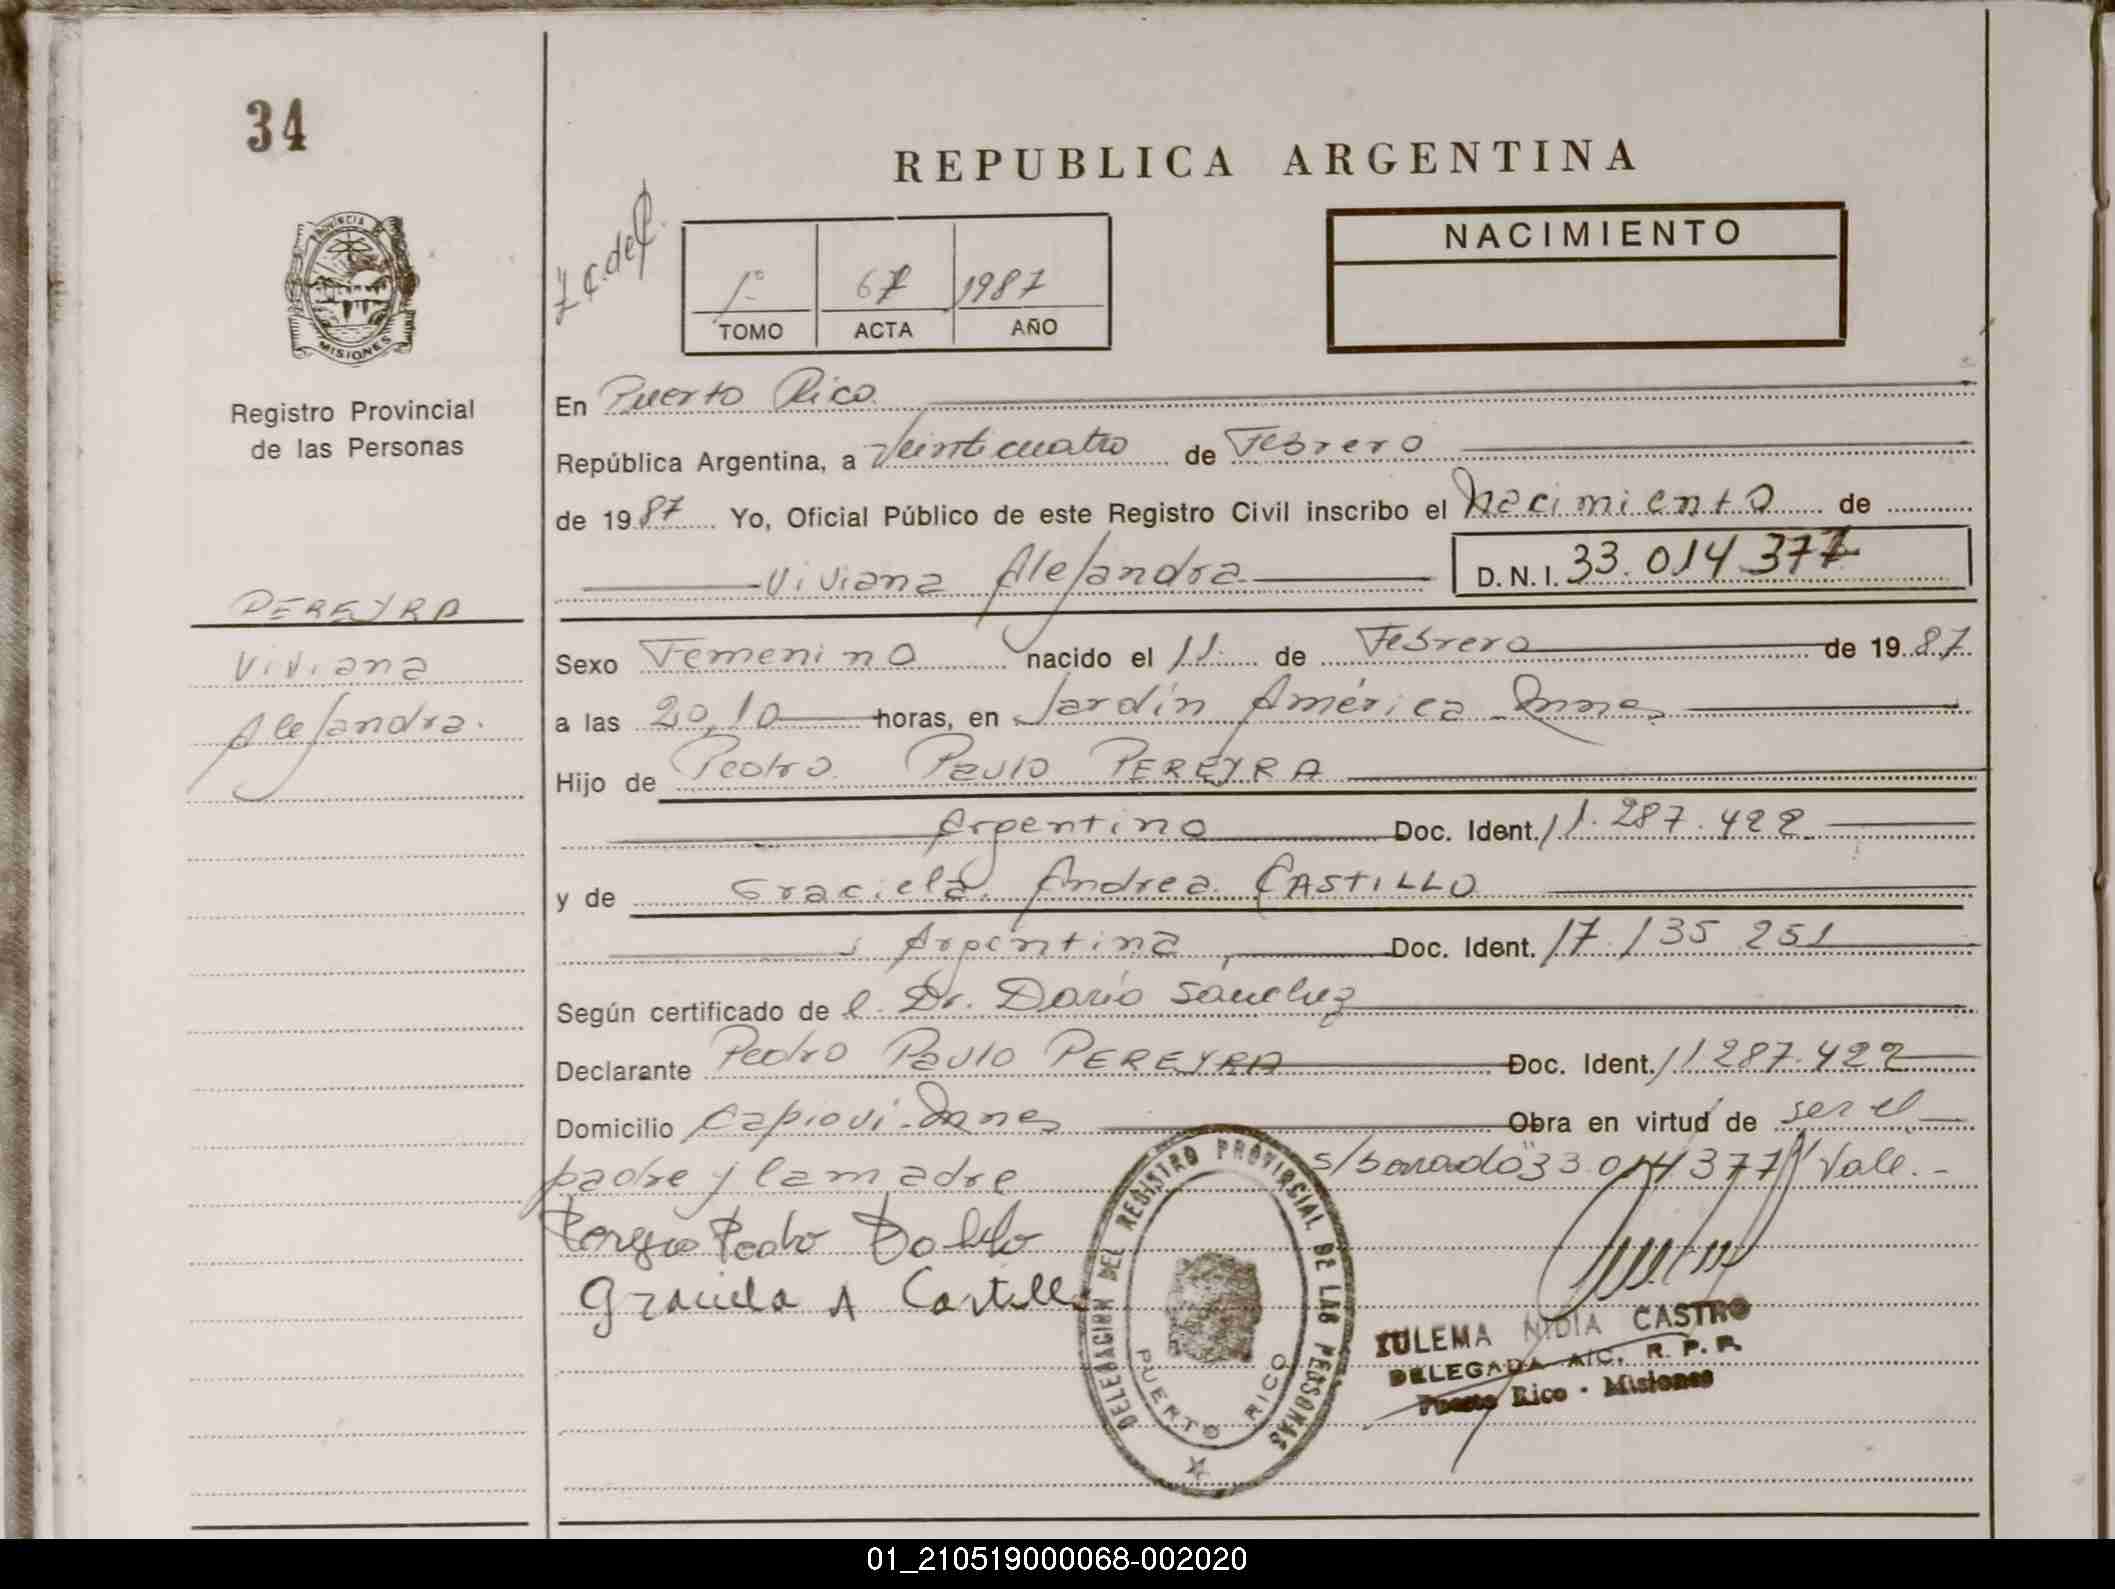 34
REPUBLICA ARGENTINA
NACIMIENTO
1º 67 1987
TOMO ACTA AÑO
PROVINCIA
MISIONES
Registro Provincial
de las Personas
En Puerto Rico
República Argentina, a Veinticuatro de Febrero
de 1987 Yo, Oficial Público de este Registro Civil inscribo el Nacimiento de
Viviana Alejandra D.N.I. 33.014.377
PEREYRA
Viviana
Alejandra.
Sexo Femenino nacido el 11 de Febrero de 1987
a las 20,10 horas, en Jardín América
Hijo de Pedro Paulo PEREYRA
Argentino Doc. Ident. 11.287.422
y de Graciela Andrea CASTILLO
Argentina, Doc. Ident. 17.135.251
Según certificado del Dr. Darío Sanchez
Declarante Pedro Paulo PEREYRA Doc. Ident. 11287.422
Domicilio Capiovi Obra en virtud de ser el
padre y la madre s/borrado "33.014.377" Vale.-
Pedro
Graciela A Castillo
DELEGACION DEL REGISTRO PROVINCIAL DE LAS PERSONAS
PUERTO RICO
ZULEMA NIDIA CASTRO
DELEGADA A/C. R. P. P.
Puerto Rico - Misiones
01_210519000068-002020